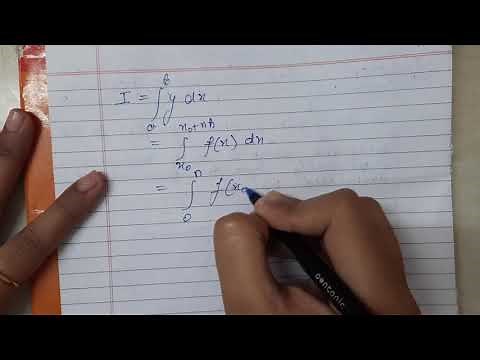 I = ∫ₐᵇ y dx
= ∫ₓ₀ˣ⁰⁺ⁿʰ f(x) dx
= ∫₀ⁿ f(x₀
pentonic